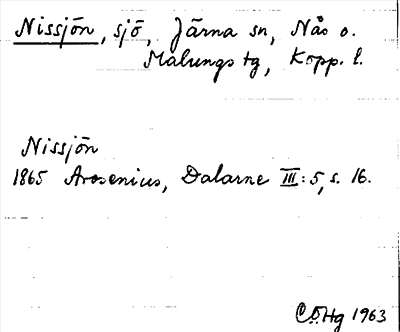 Nissjön, sjö, Järna sn, Nås o.
Malungs tg, Kopp. l.
Nissjön
1865 Arosenius, Dalarne III:5, s. 16.
CÖHg 1963